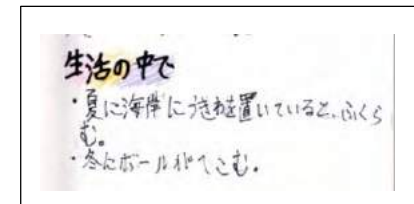 生活の中で
・夏に海岸にうきわを置いていると、ふくら
む。
・冬にボールがへこむ。